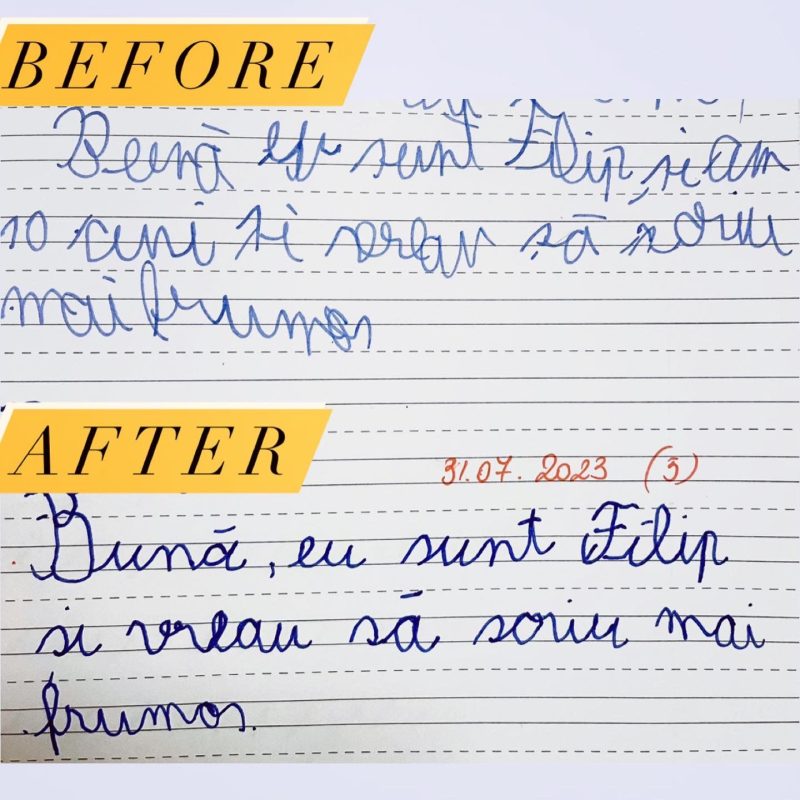 BEFORE
Bună eu sunt Filip, și am
10 ani și vreau să scriu
mai frumos
AFTER
31.07.2023 (3)
Bună, eu sunt Filip
și vreau să scriu mai
frumos.